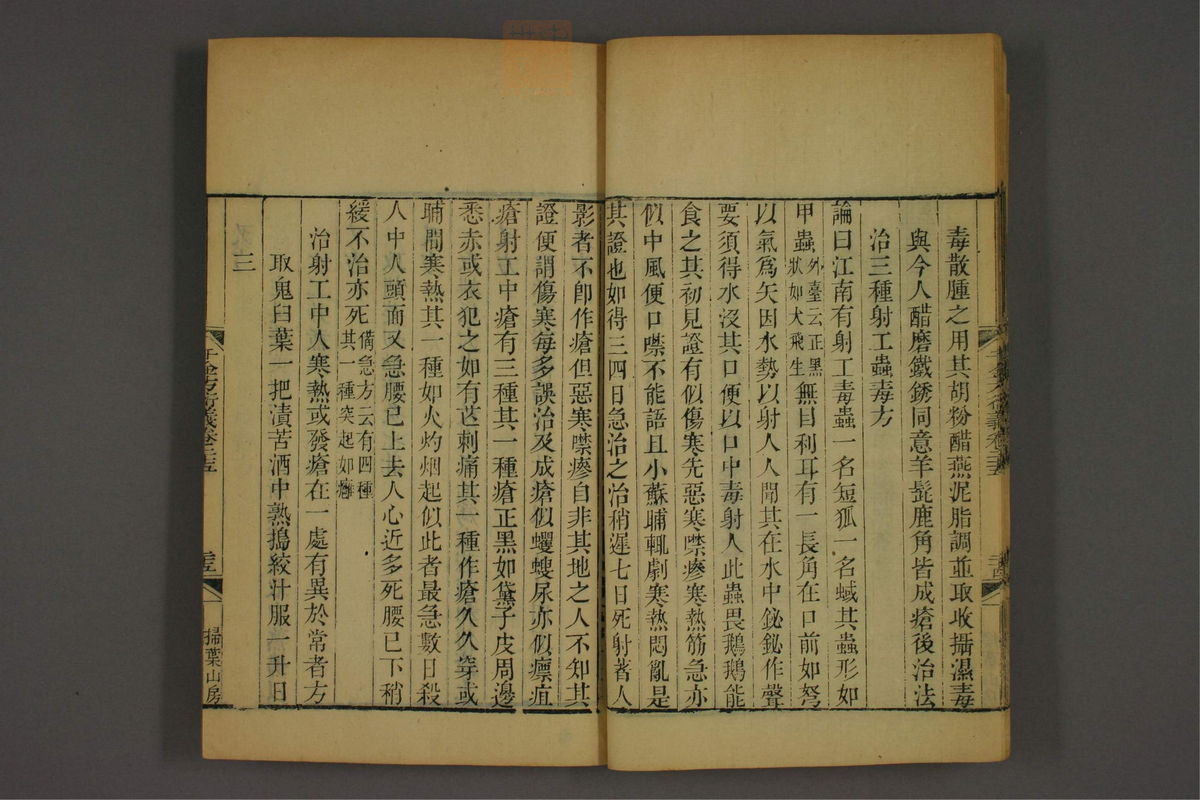 毒散腫之用其胡粉醋燕泥脂調並取收攝濕毒
與今人醋磨鐵銹同意羊髭鹿角皆成瘡後治法
治三種射工蟲毒方
論曰江南有射工毒蟲一名短狐一名蜮其蟲形如
甲蟲外臺云正黑狀如大飛生無目利耳有一長角在口前如弩
以氣爲矢因水勢以射人人聞其在水中鉍鉍作聲
要須得水沒其口便以口中毒射人此蟲畏鵝鵝能
食之其初見證有似傷寒先惡寒噤瘮寒熱筋急亦
似中風便口噤不能語且小蘇晡輒劇寒熱悶亂是
其證也如得三四日急治之治稍遲七日死射著人
影者不卽作瘡但惡寒噤瘮自非其地之人不知其
證便謂傷寒每多誤治及成瘡似蠼螋尿亦似瘭疽
瘡射工中瘡有三種其一種瘡正黑如黛子皮周邊
悉赤或衣犯之如有芒刺痛其一種作瘡久久穿或
晡間寒熱其一種如火灼烟起似此者最急數日殺
人中人頭面又急腰已上去人心近多死腰已下稍
緩不治亦死備急方云有四種其一種突起如癰
治射工中人寒熱或發瘡在一處有異於常者方
取鬼臼葉一把漬苦酒中熟搗絞汁服一升日
三
千金方衍義卷二十五
掃葉山房